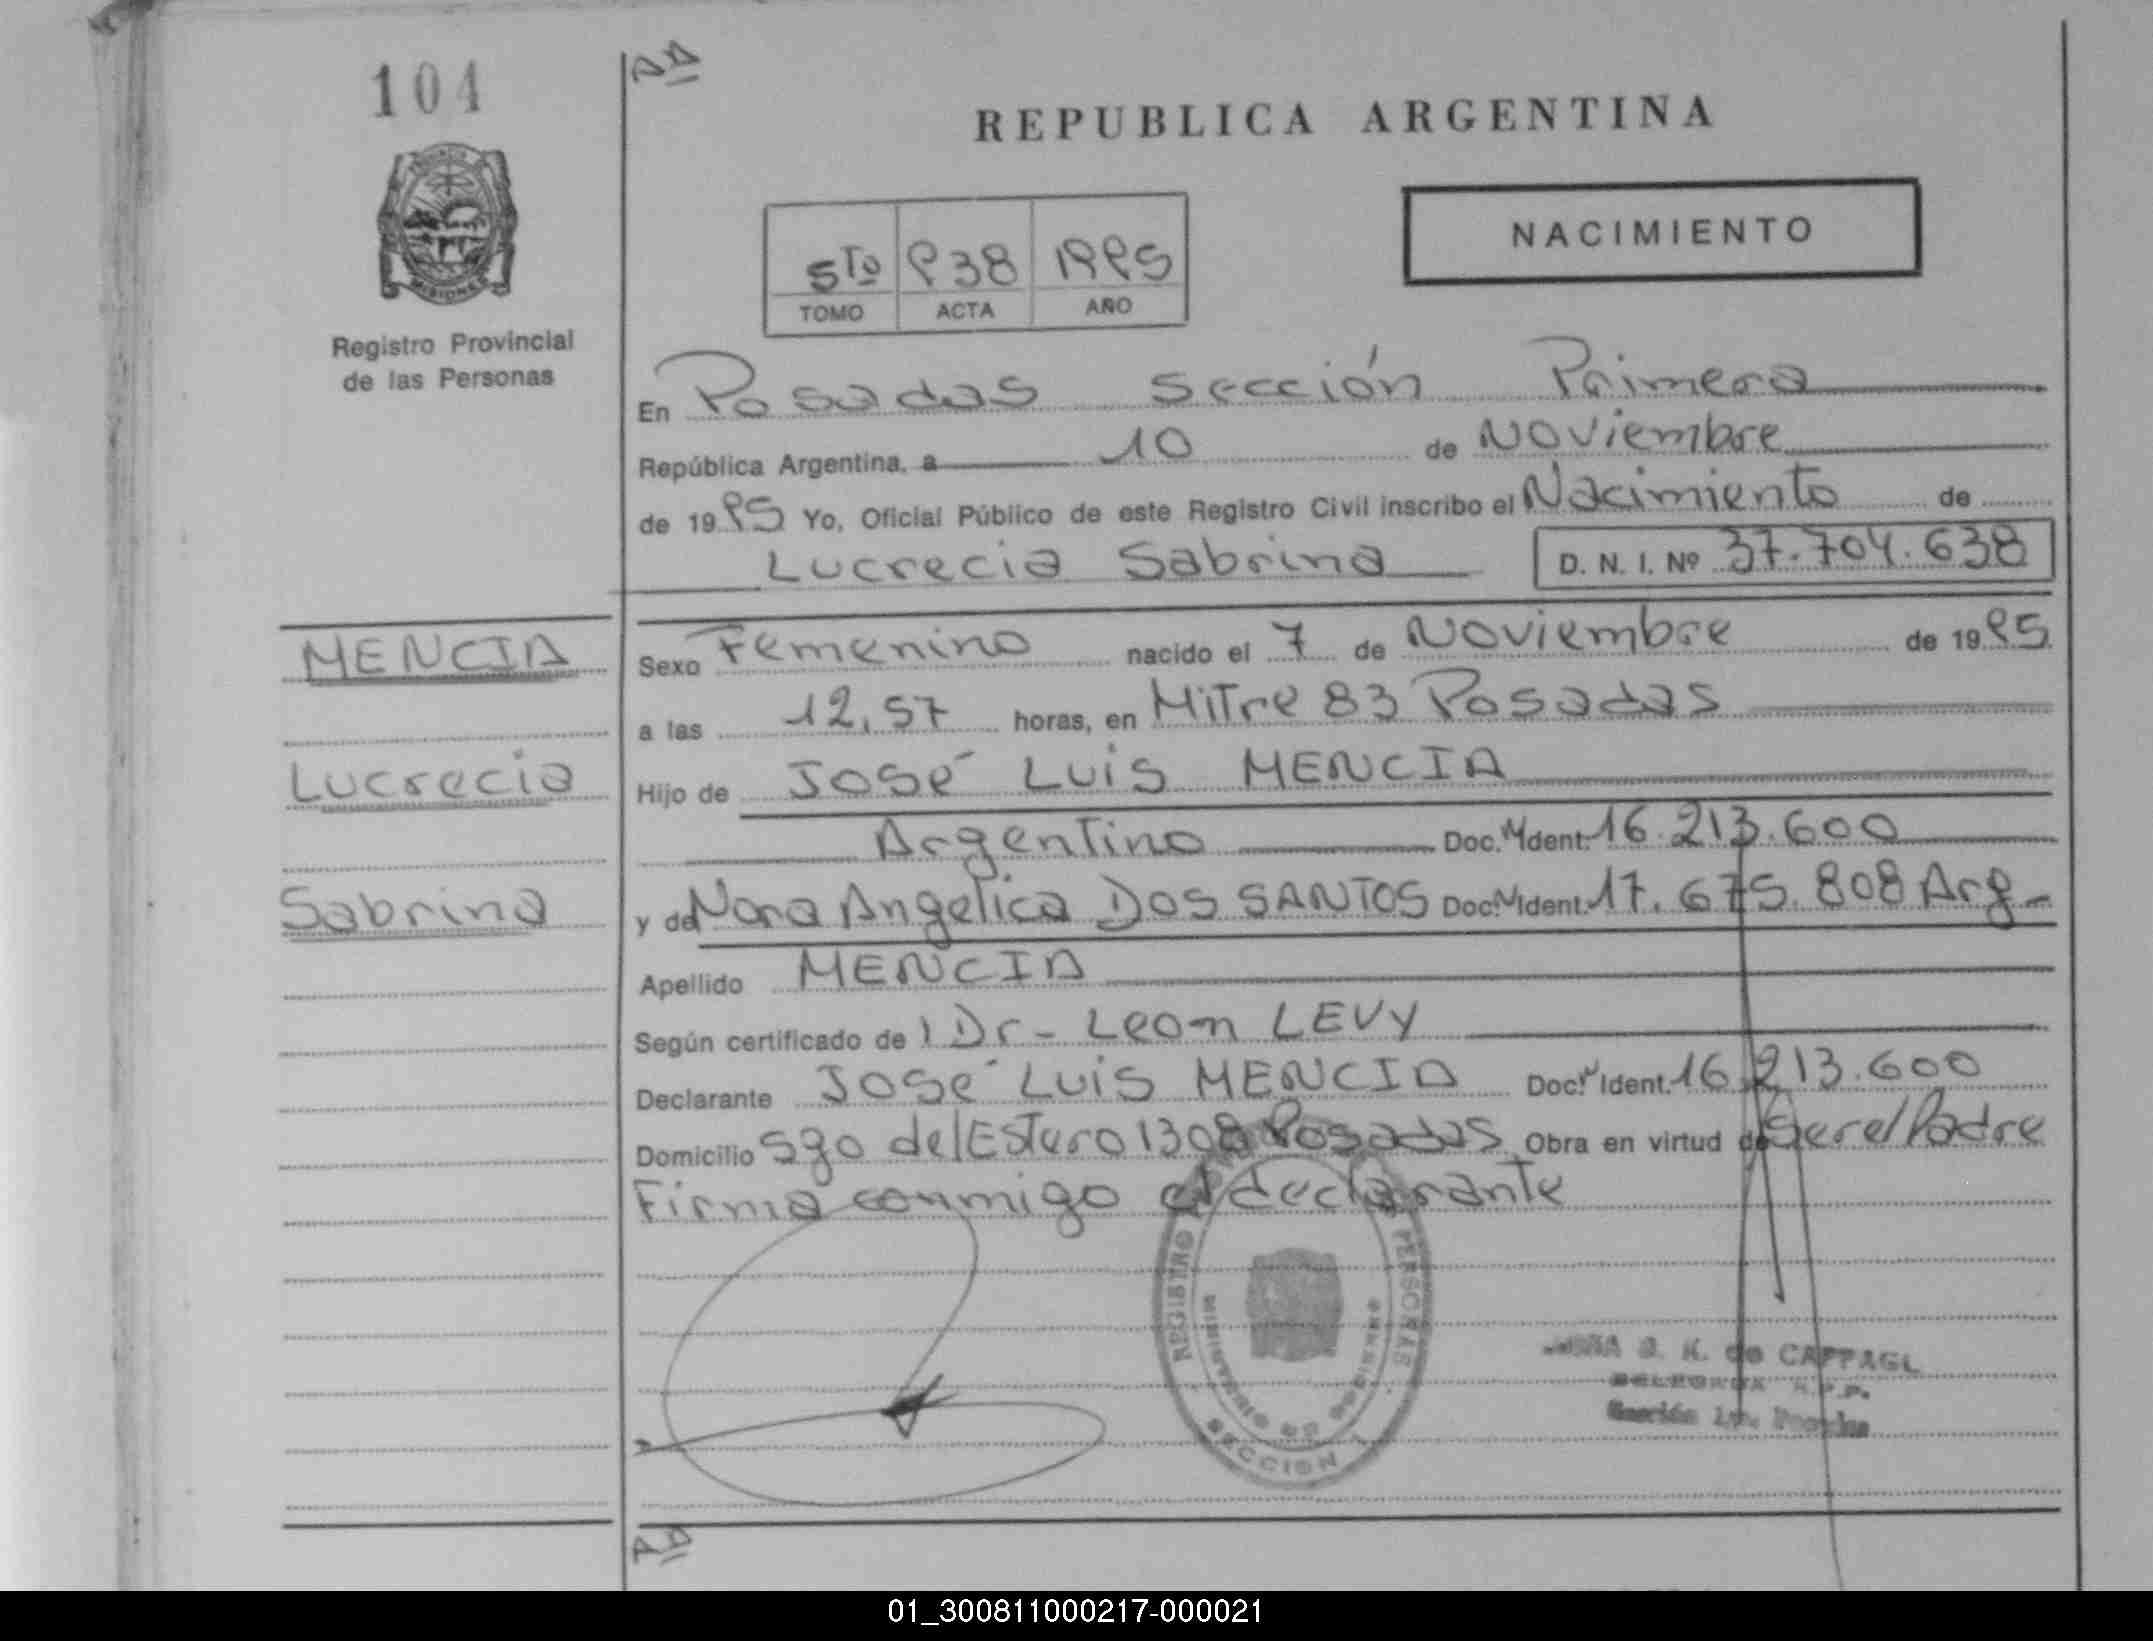 104
REPUBLICA ARGENTINA
NACIMIENTO
5to 938 1995
TOMO ACTA AÑO
MISIONES
Registro Provincial
de las Personas
En Posadas Sección Primera
República Argentina, a 10 de Noviembre
de 1995 Yo, Oficial Público de este Registro Civil inscribo el Nacimiento de
Lucrecia Sabrina D. N. I. Nº 37.704.638
MENCIA
Sexo Femenino nacido el 7 de Noviembre de 1995.
a las 12,57 horas, en Mitre 83 Posadas
Lucrecia
Hijo de José Luis MENCIA
Argentino Doc. Ident. 16.213.600
Sabrina
y de Nora Angelica DOS SANTOS Doc. Ident. 17.675.808 Arg-
Apellido MENCIA
Según certificado de l Dr- Leon LEVY
Declarante José Luis MENCIA Doc. Ident. 16.213.600
Domicilio Sgo del Estero 1308 Posadas Obra en virtud de Ser el Padre
Firma conmigo el declarante
REGISTRO PERSONAS
MINISTERIO DE GOBIERNO
SECCION 1
de CAPPAGL
01_300811000217-000021